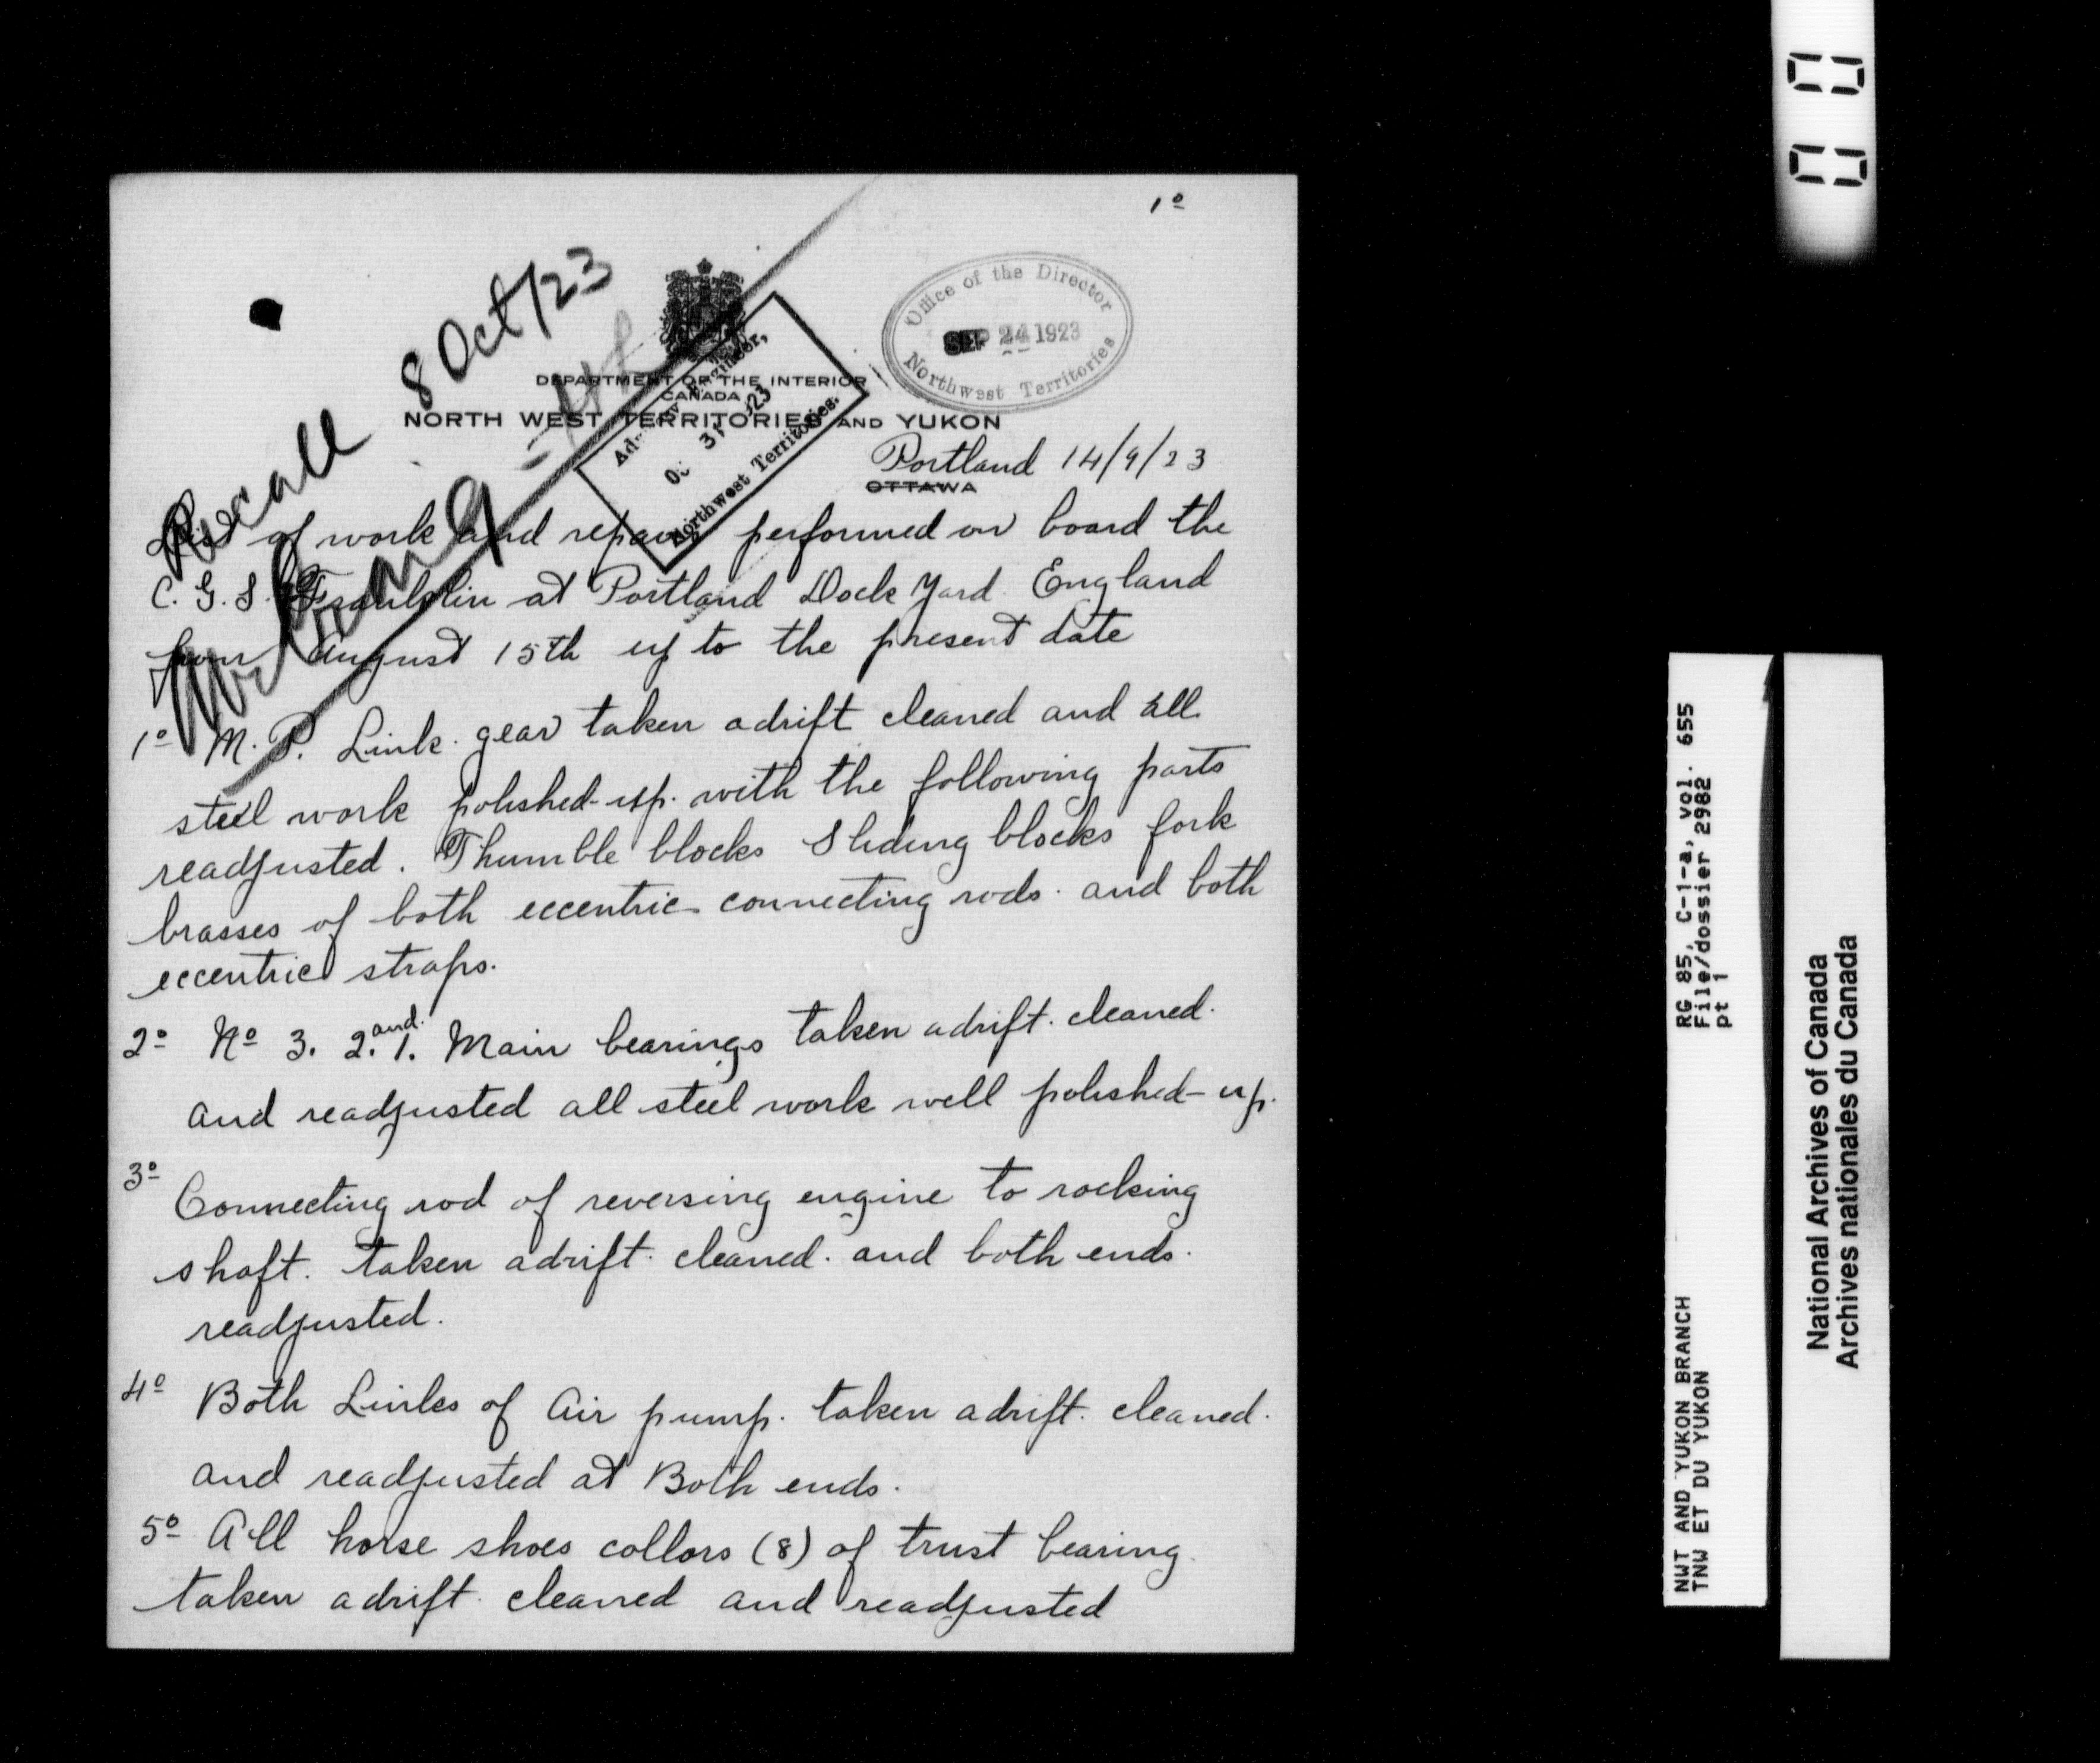 1º
Recall 8 Oct/23
DEPARTMENT OF THE INTERIOR
CANADA
NORTH WEST TERRITORIES AND YUKON
Office of the Director
SEP 24 1923
Northwest Territories
Engineer,
31 23
Northwest Territories.
Portland 14/9/23
OTTAWA
List of work and repairs performed on board the
C. G. S. Franklin at Portland Dock Yard England
from August 15th up to the present date
1º M. P. Link gear taken adrift cleaned and all
steel work polished-up. with the following parts
readjusted. Thumble blocks Sliding blocks fork
brasses of both eccentric connecting rods. and both
eccentric straps.
2º Nº 3. 2. and 1. Main bearings taken adrift. cleaned.
and readjusted all steel work well polished-up.
3º Connecting rod of reversing engine to rocking
shaft. taken adrift. cleaned. and both ends.
readjusted.
4º Both Links of Air pump. taken adrift. cleaned.
and readjusted at Both ends.
5º All horse shoes collars (8) of trust bearing.
taken adrift. cleaned and readjusted
RG 85, C-1-a, vol. 655
File/dossier 2982
pt 1
NWT AND YUKON BRANCH
TNW ET DU YUKON
National Archives of Canada
Archives nationales du Canada